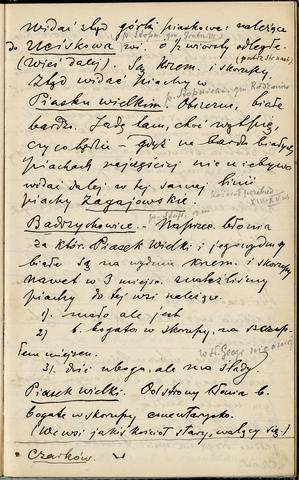 Widać stąd górki piaskowe: należące
p. Stopn. gm.
do Uciskowa wsi. o ½ wiorsty odległe
(Wieś dalej). Są krzem. i skorupy.
Stąd widać piachy w
p. Stopnicki, gm.
Piasku wielkim. Obszerne, białe
bardzo. Jadę tam, choć wątpię,
czy co będzie – gdyż na bardzo białych
piachach najczęściej nic nie bywa
widać dalej w tej samej linii
piachy Zagajowskie.
p. Stop. gm.
Badrzychowice. – Naprzec. błonia
za które Piasek Wielki i jego wydmy
białe są na wydmie krzem. i skorupy
nawet w 3 miejsc. znaleźliśmy
piachy do tej wsi należące.
1). mało ale jest
2) b. bogata w skorupy, na szczup-
łem miejscu.
3). dość uboga, ale ma ślady.
Piasek Wielki. Od strony błonia b.
bogate w skorupy cmentarzysko.
(We wsi jakiś kościoł stary, walący się.)
Czarków.